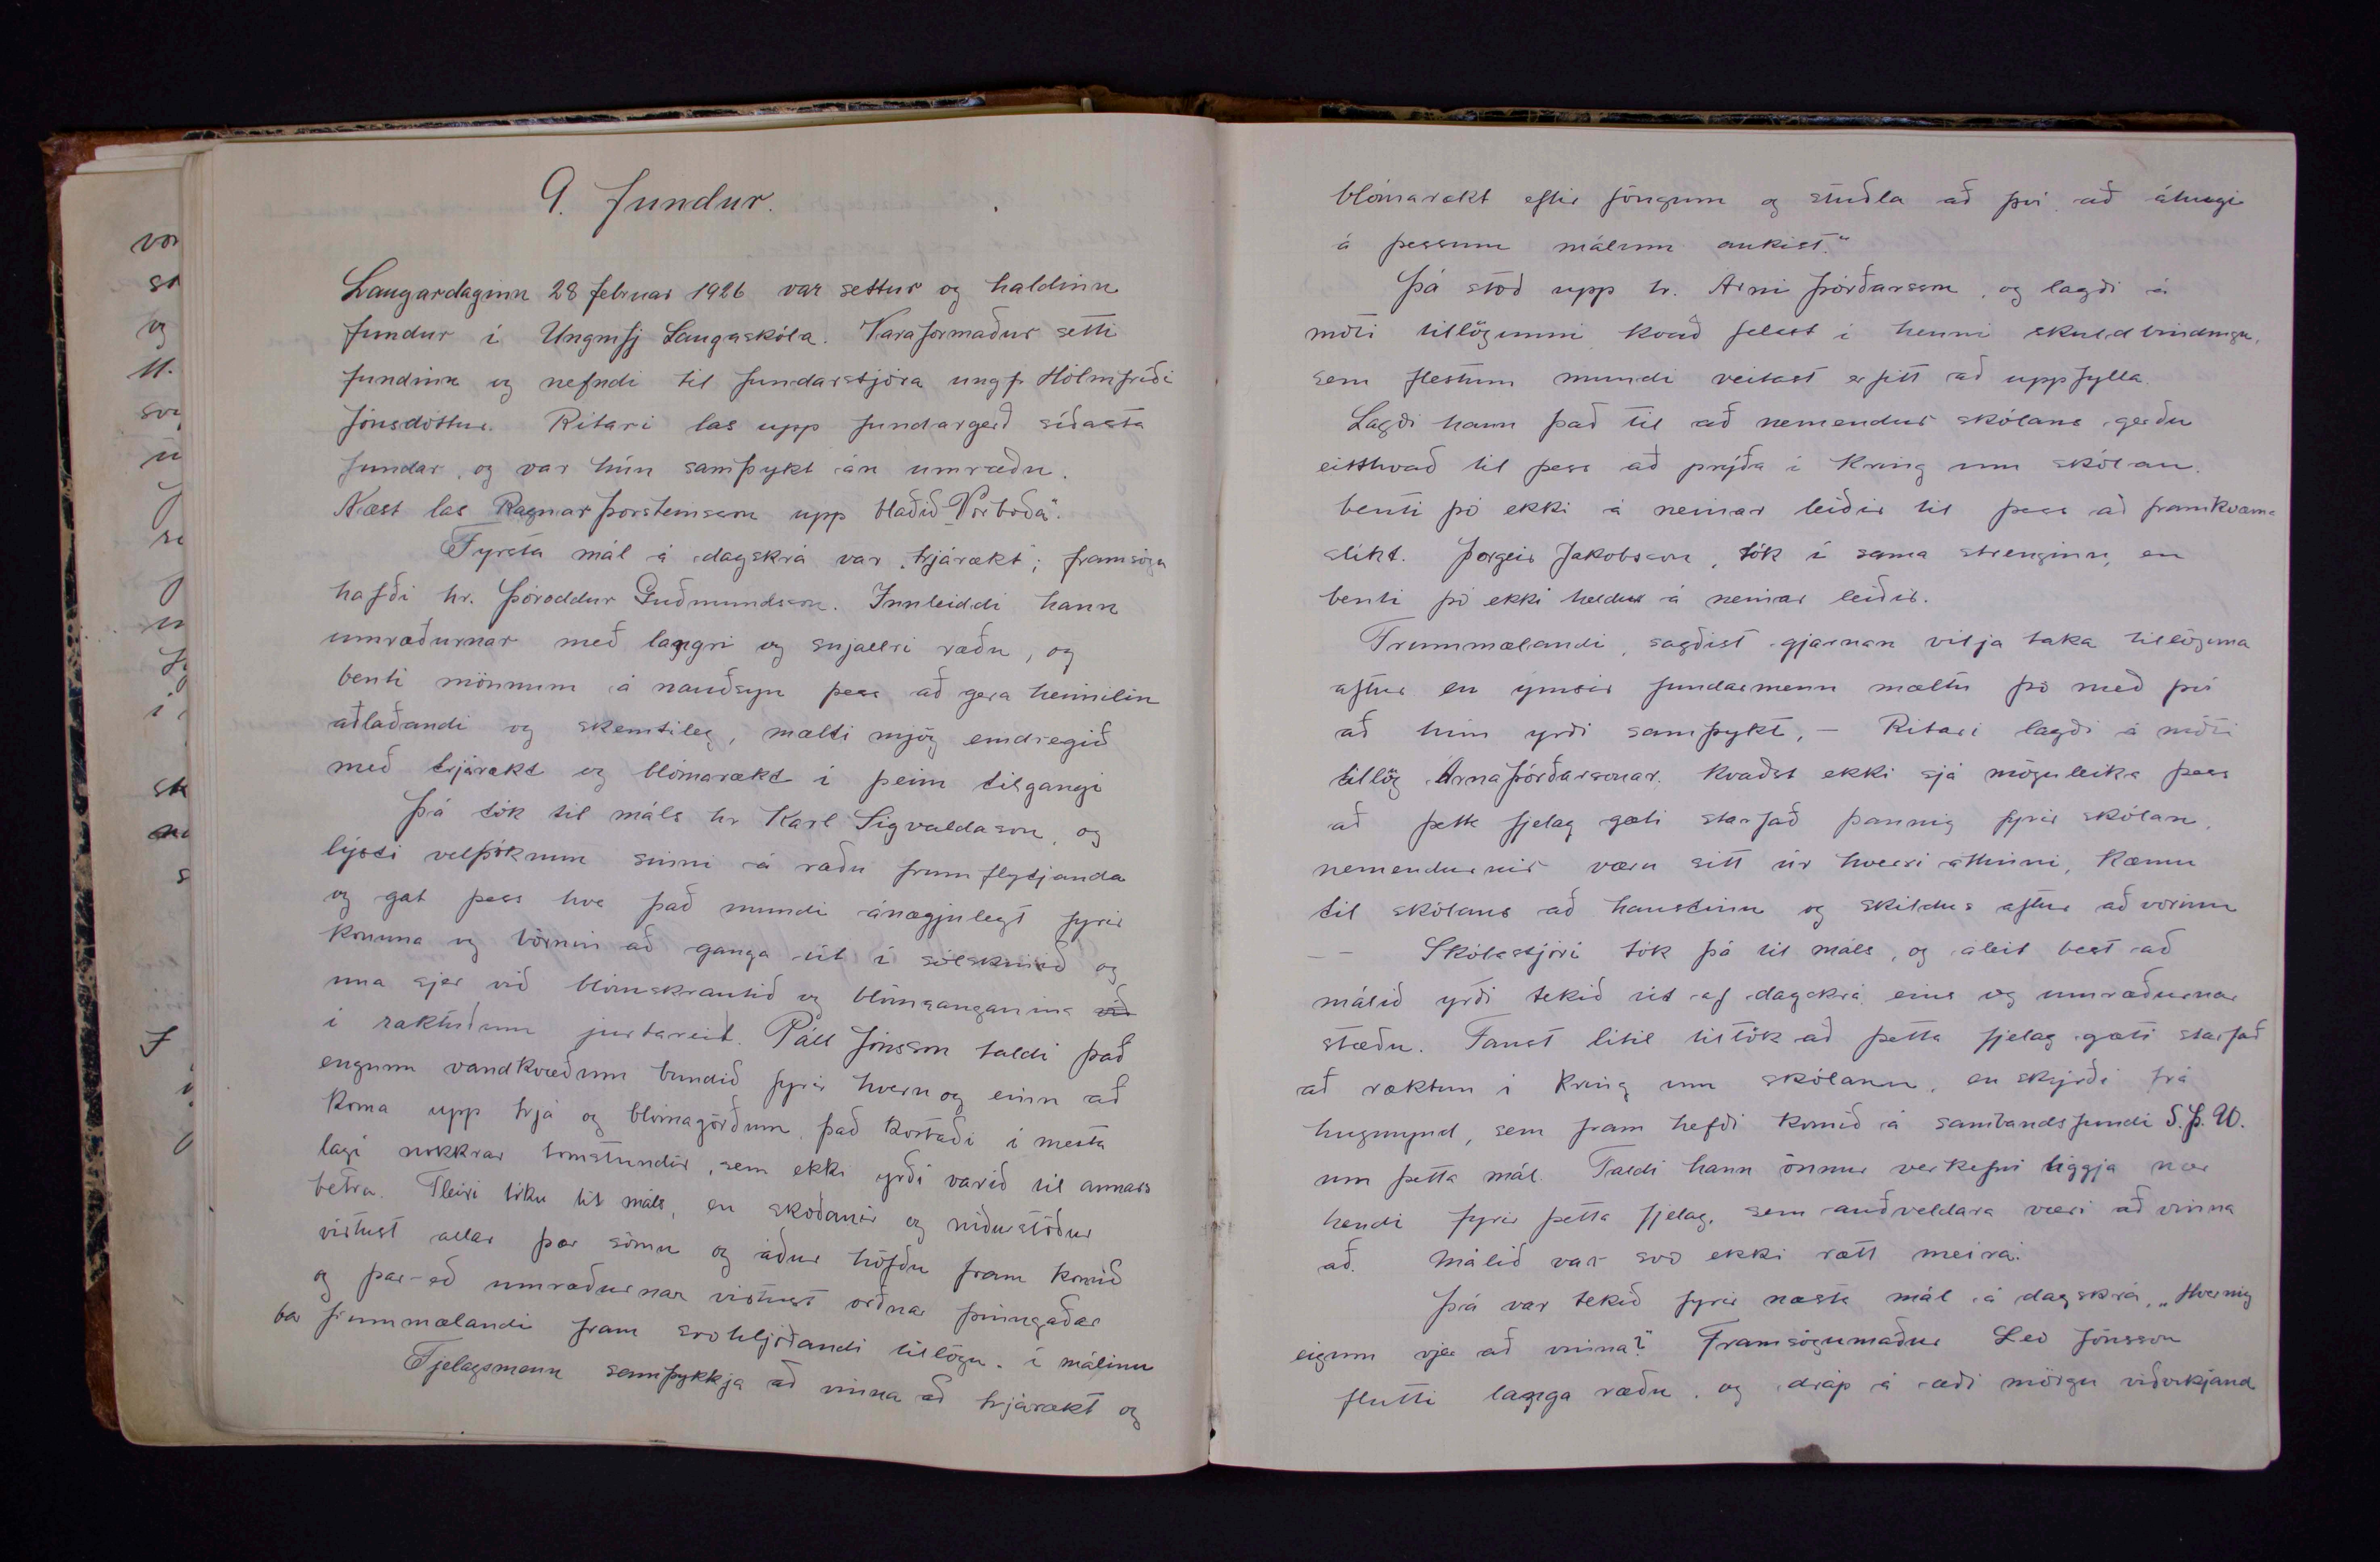 9. fundur.
Laugardaginn 28 februar 1926 var settur og haldinn
fundur í Ungmfj Laugaskóla. Varaformaður setti
fundinn og nefndi til fundarstjóra ungfr Hólmfríði
Jónsdóttur. Ritari las upp fundargerð síðasta
fundar, og var hún samþykt án umræðu.
Næst las Ragnar Þorsteinsson upp blaðið „Vorboða".
Fyrsta mál á dagskrá var trjárækt; framsögu
hafði hr. Þóroddur Guðmundsson. Innleiddi hann
umræðurnar með langri og snjallri ræðu, og
benti mönnum á nauðsyn þess að gera heimilin
aðlaðandi og skemtileg, mælti mjög eindregið
með trjárækt og blómarækt í þeim tilgangi
Þá tók til máls hr Karl Sigvaldason, og
lýsti velþóknun sinni á ræðu frumflytjanda
og gat þess hve það mundi ánægjulegt fyrir
konuna og börnin að ganga út í sólskinið og
una sjer við blómskrautið og blómanganina við
í ræktuðum jurtareit. Páll Jónsson taldi það
engum vandkvæðum bundið fyrir hvern og einn að
koma upp trjá og blómagörðum, það kostaði í mesta
lagi nokkrar tómstundir, sem ekki yrði varið til annars
betra. Fleiri tóku til máls, en skoðanir og niðurstöður
virtust allar þær sömu og áður höfðu fram komið
og þar-eð umræðurnar virtust orðnar þvingaðar
bar frummælandi fram svohljóðandi tillögu. í málinu
Fjelagsmenn samþykkja að vinna að trjárækt og
blómarækt eftir föngum og stuðla að því að áhugi
á þessum málum aukist."
Þá stóð upp hr. Árni Þórðarson, og lagði á
móti tillögunni kvað felast í henni skuldbindingu,
sem flestum mundi veitast erfitt að uppfylla.
Lagði hann það til að nemendur skólans gerðu
eitthvað til þess að prýða í kring um skólan.
benti þó ekki á neinar leiðir til þess að framkvæma
slíkt. Þorgeir Jakobsson, tók í sama strenginn, en
benti þó ekki heldur á neinar leiðir.
Frummælandi, sagðist gjarnan vilja taka tillöguna
aftur en ýmsir fundarmenn mæltu þó með því
að hún yrði samþykt, — Ritari lagði á móti
tillög Árna Þórðarsonar. Kvaðst ekki sjá möguleika þess
að þetta fjelag gæti starfað þannig fyrir skólan,
nemendurnir væru sitt úr hverri áttinni, kæmu
til skólans að haustinu og skildus aftur að vorinu
— — Skólastjóri tók þá til máls, og áleit best að
málið yrði tekið út af dagskrá eins og umræðurnar
stæðu. Fanst lítil tiltök að þetta fjelag gæti starfað
að ræktun í kring um skólann, en skýrði frá
hugmynd, sem fram hefði komið á sambandsfundi S.Þ.U.
um þetta mál. Taldi hann önnur verkefni liggja nær
hendi fyrir þetta fjelag, sem auðveldara væri að vinna
að. Málið var svo ekki rætt meira.
Þá var tekið fyrir næsta mál á dagskrá, „Hvernig
eigum vjer að vinna?" Framsögumaður Leó Jónsson
flutti langa ræðu, og dráp á æði mörgu viðvíkjand